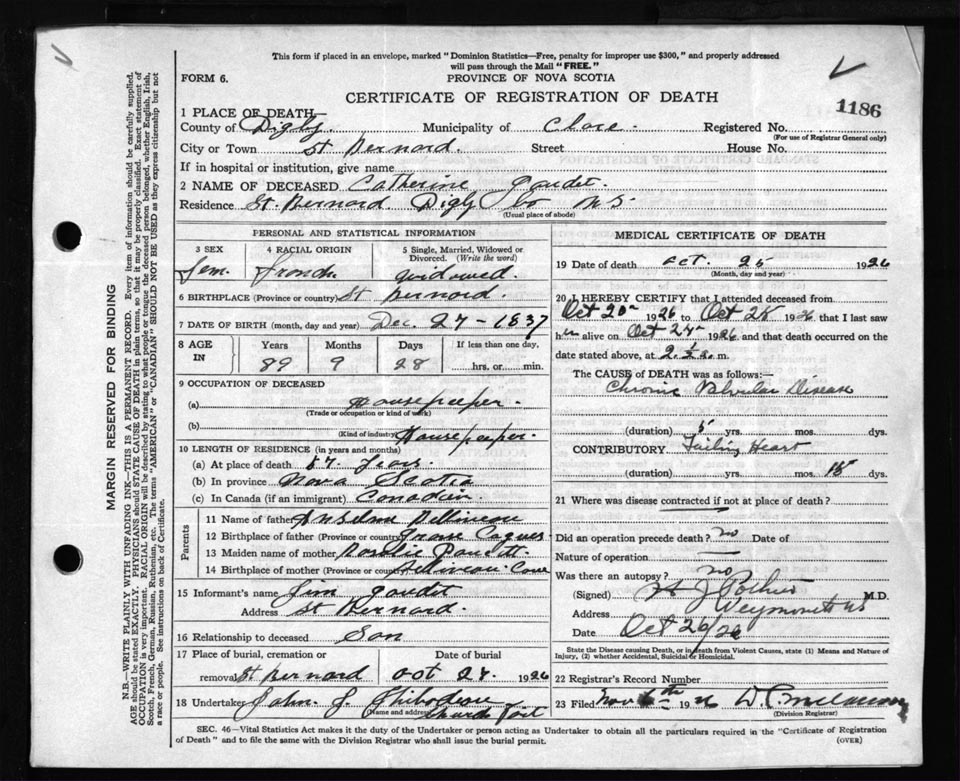 This form if placed in an envelope, marked "Dominion Statistics—Free, penalty for improper use $300," and properly addressed
will pass through the Mail "FREE."
FORM 6.
PROVINCE OF NOVA SCOTIA
CERTIFICATE OF REGISTRATION OF DEATH
1186
1 PLACE OF DEATH—
County of Digby Municipality of Clare. Registered No.
(For use of Registrar General only)
City or Town St Bernard. Street House No.
If in hospital or institution, give name
2 NAME OF DECEASED Catherine Gaudet.
Residence St. Bernard Digby Co N S.
(Usual place of abode)
PERSONAL AND STATISTICAL INFORMATION
3 SEX 4 RACIAL ORIGIN 5 Single, Married, Widowed or
Divorced. (Write the word)
Fem. French widowed.
6 BIRTHPLACE (Province or country) St Bernard.
7 DATE OF BIRTH (month, day and year) Dec. 27 - 1837
8 AGE IN Years Months Days If less than one day,
89 9 28 hrs. or min.
9 OCCUPATION OF DECEASED
(a) Housekeeper.
(Trade or occupation or kind of work)
(b) Housekeeper.
(Kind of industry)
10 LENGTH OF RESIDENCE (in years and months)
(a) At place of death 67 Years
(b) In province Nova Scotia
(c) In Canada (if an immigrant) Canadian.
Parents
11 Name of father Anselme
12 Birthplace of father (Province or country)
13 Maiden name of mother Rosalie
14 Birthplace of mother (Province or country) Belliveau Cove
15 Informant's name Jim Gaudet
Address St Bernard.
16 Relationship to deceased Son
17 Place of burial, cremation or Date of burial
removal St Bernard Oct 27. 1926
18 Undertaker John J.
(Name and address) Church Point
MEDICAL CERTIFICATE OF DEATH
19 Date of death Oct. 25 1926
(Month, day and year)
20 I HEREBY CERTIFY that I attended deceased from
Oct 20th 1926 to Oct 25 1926 that I last saw
h alive on Oct 24th 1926 and that death occurred on
date stated above, at m.
The CAUSE OF DEATH was as follows:—
Chronic Valvular Disease
(duration) 5 yrs. mos. dys.
CONTRIBUTORY Failing Heart
(duration) yrs. mos. 15 dys.
21 Where was disease contracted if not at place of death?
Did an operation precede death? no Date of
Nature of operation
Was there an autopsy? no
(Signed) H J Pothier M.D.
Address Weymouth NS
Date Oct 26/26
State the Disease causing Death, or in death from Violent Causes, state (1) Means and Nature of
Injury, (2) whether Accidental, Suicidal or Homicidal.
22 Registrar's Record Number
23 Filed Nov 6th 1926
(Division Registrar)
SEC. 46—Vital Statistics Act makes it the duty of the Undertaker or person acting as Undertaker to obtain all the particulars required in the "Certificate of Registration
of Death" and to file the same with the Division Registrar who shall issue the burial permit. (OVER)
MARGIN RESERVED FOR BINDING
N.B.—WRITE PLAINLY WITH UNFADING INK—THIS IS A PERMANENT RECORD. Every item of information should be carefully supplied.
AGE should be stated EXACTLY. PHYSICIANS should STATE CAUSE OF DEATH in plain terms, so that it may be properly classified. Exact statement of
OCCUPATION is very important. RACIAL ORIGIN will be described by stating to what people or tongue the deceased person belonged, whether English, Irish,
Scotch, French, German, Russian, Ruthenian, etc. The terms "AMERICAN" or "CANADIAN" SHOULD NOT BE USED as they express citizenship but not
a race or people. See instructions on back of Certificate.